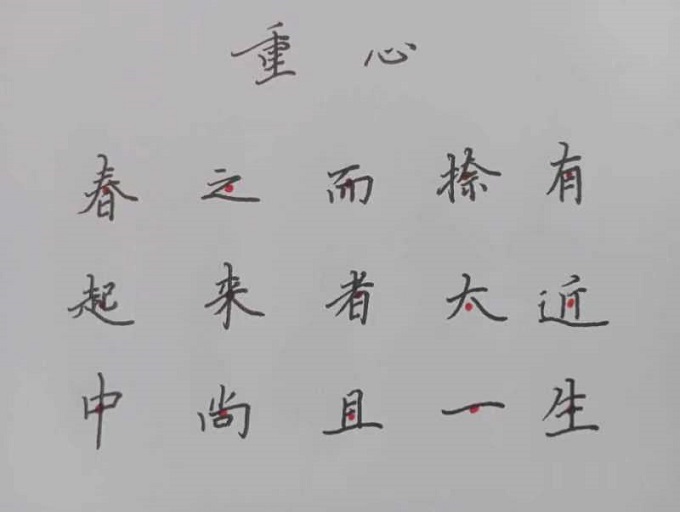 重心
春之而捺有
起来者大近
中尚且一生